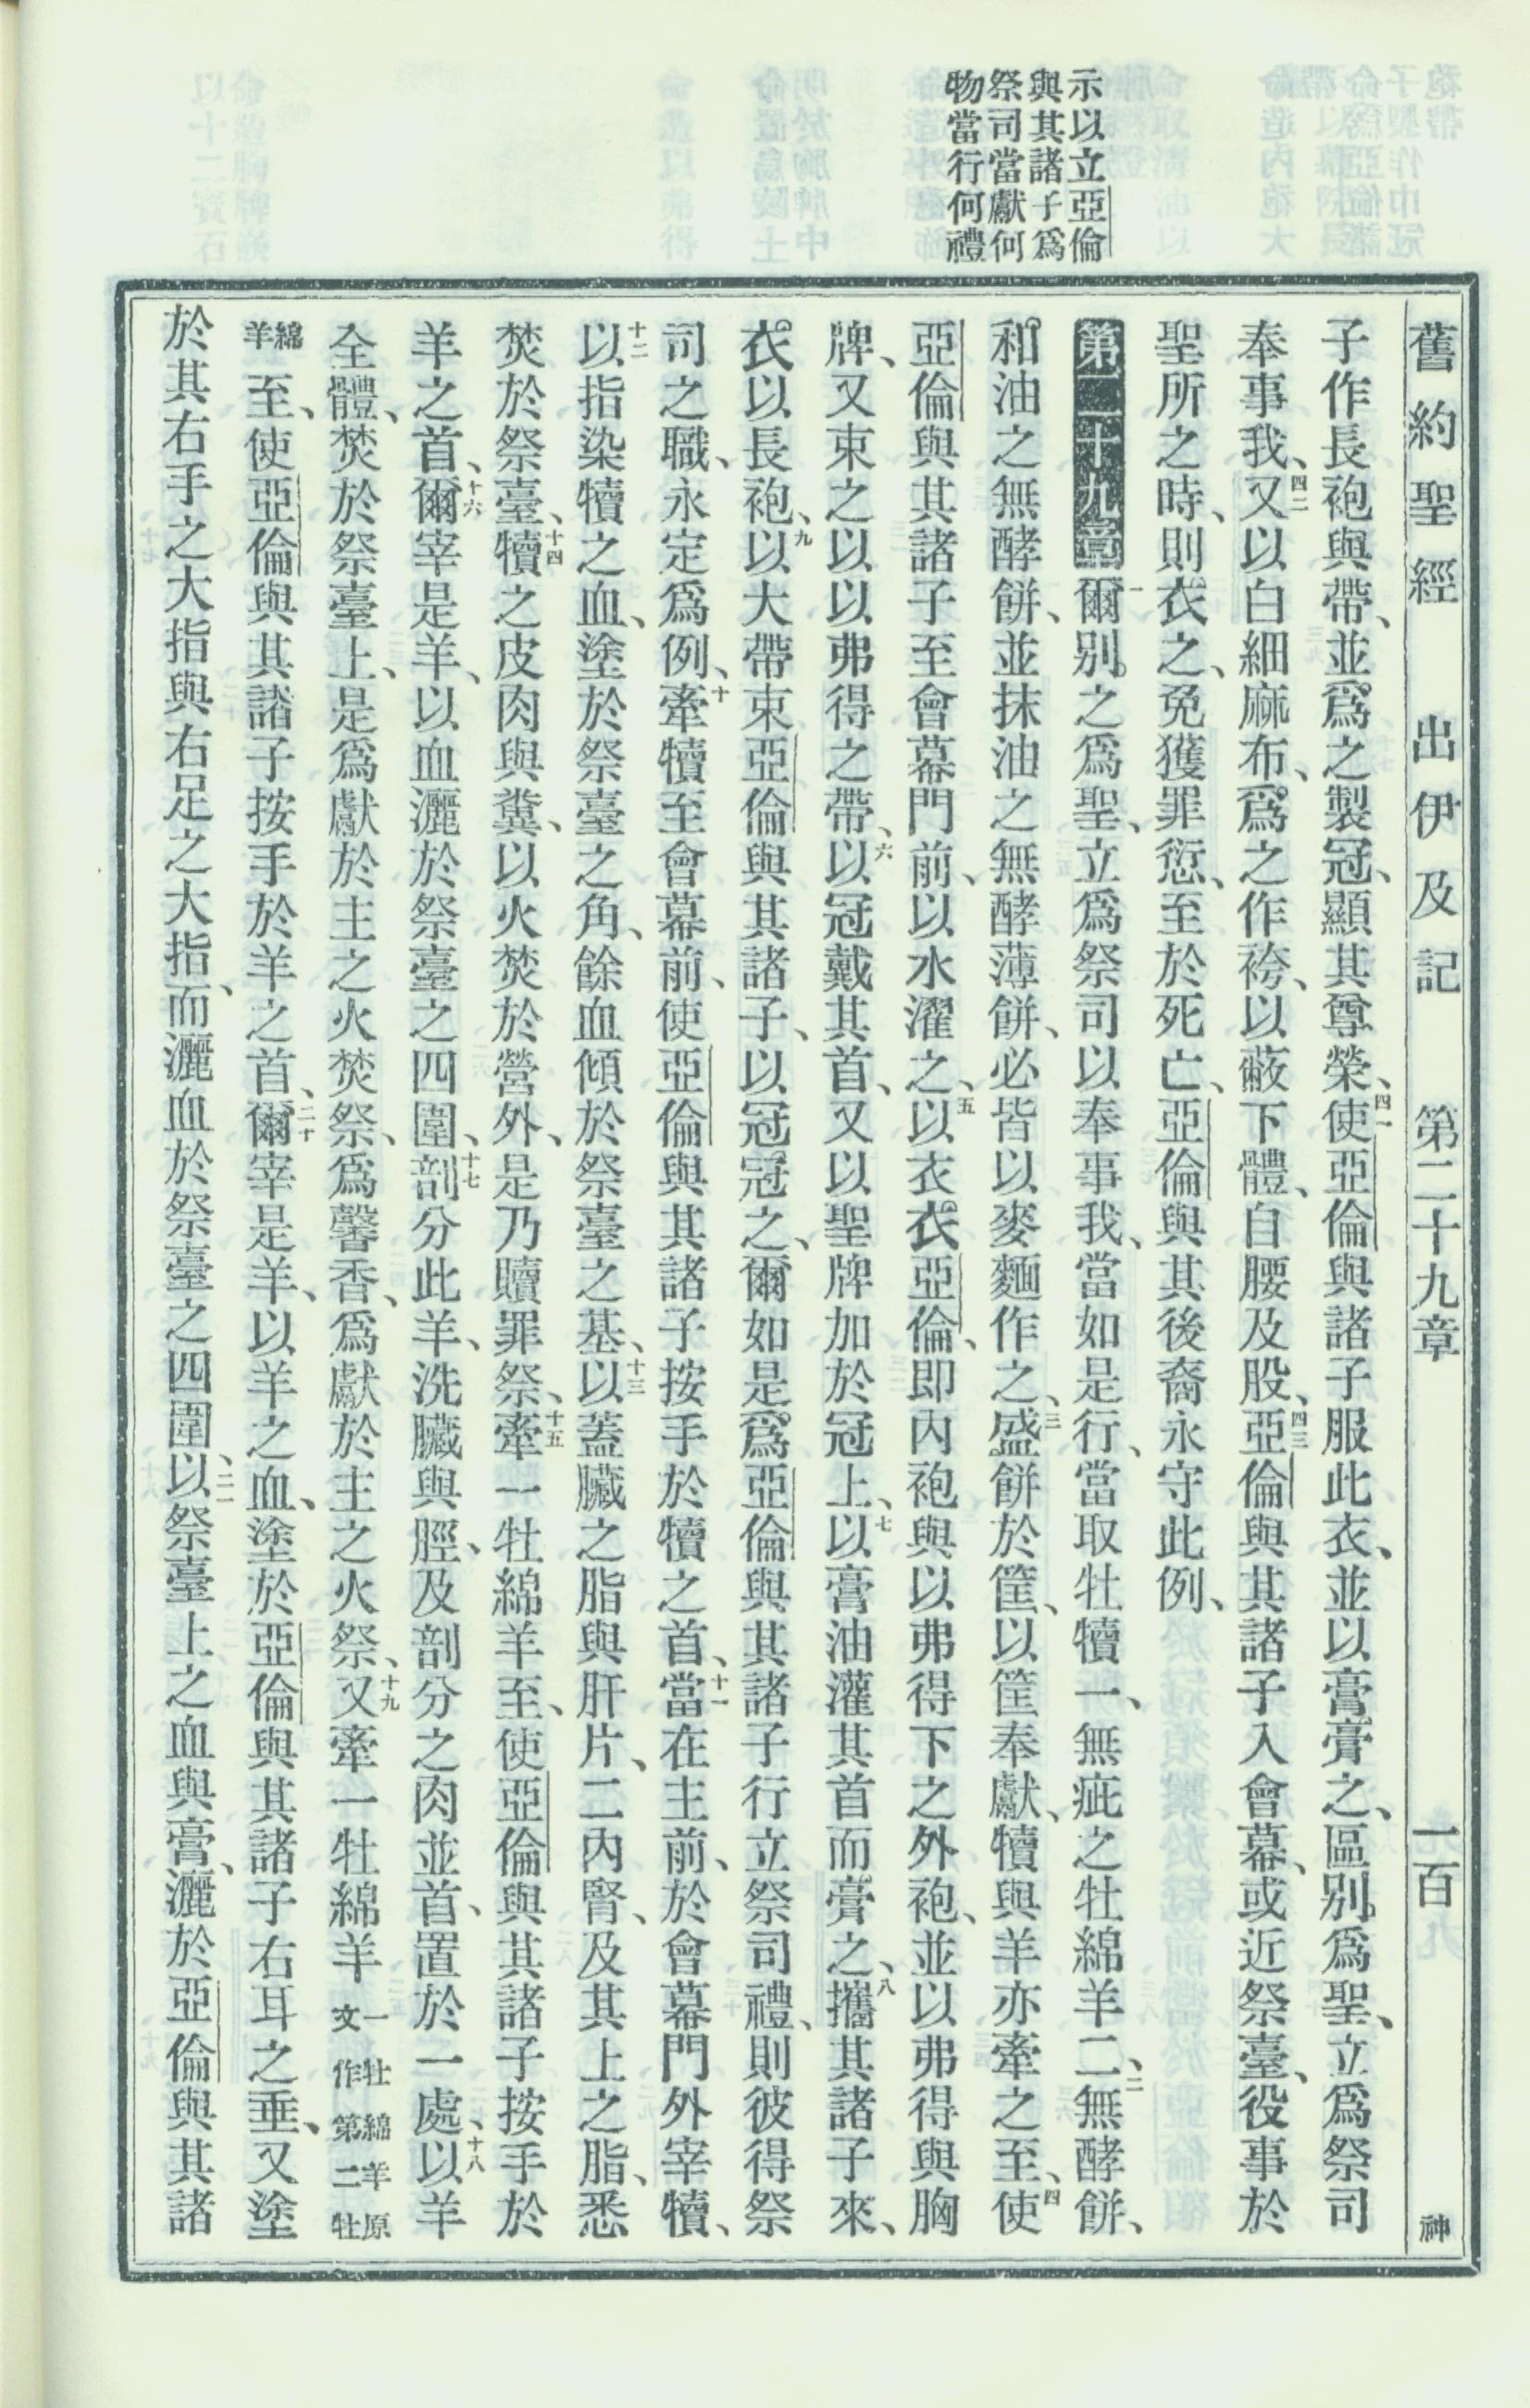 舊約聖經 出伊及記 第二十九章 一百 神
示以立亞倫
與其諸子爲
祭司當獻何
物當行何禮
子作長袍與帶、並爲之製冠、顯其尊榮、四一使亞倫與諸子服此衣、並以膏膏之、區別爲聖、立爲祭司
奉事我、四二又以白細麻布、爲之作袴、以蔽下體、自腰及股、四三亞倫與其諸子入會幕、或近祭臺、役事於
聖所之時、則衣之、免獲罪愆、至於死亡、亞倫與其後裔永守此例、
第二十九章 一爾別之爲聖、立爲祭司以奉事我、當如是行、當取牡犢一、無疵之牡綿羊二、二無酵餅、
和油之無酵餅、並抹油之無酵薄餅、必皆以麥麵作之、三盛餅於筐、以筐奉獻、犢與羊亦牽之至、四使
亞倫與其諸子至會幕門前、以水濯之、五以衣衣亞倫、即內袍與以弗得下之外袍、並以弗得與胸
牌、又束之以以弗得之帶、六以冠戴其首、又以聖牌加於冠上、七以膏油灌其首而膏之、八攜其諸子來、
衣以長袍、九以大帶束亞倫與其諸子、以冠冠之、爾如是爲亞倫與其諸子行立祭司禮、則彼得祭
司之職、永定爲例、十牽犢至會幕前、使亞倫與其諸子按手於犢之首、十一當在主前、於會幕門外宰犢、
十二以指染犢之血、塗於祭臺之角、餘血傾於祭臺之基、十三以蓋臟之脂與肝片、二內腎、及其上之脂、悉
焚於祭臺、十四犢之皮肉與糞、以火焚於營外、是乃贖罪祭、十五牽一牡綿羊至、使亞倫與其諸子按手於
羊之首、十六爾宰是羊、以血灑於祭臺之四圍、十七剖分此羊、洗臟與脛、及剖分之肉並首、置於一處、十八以羊
全體、焚於祭臺上、是爲獻於主之火焚祭、爲馨香、爲獻於主之火祭、十九又牽一牡綿羊一牡綿羊原文作第二牡
綿羊至、使亞倫與其諸子按手於羊之首、二十爾宰是羊、以羊之血、塗於亞倫與其諸子右耳之垂、又塗
於其右手之大指與右足之大指、而灑血於祭臺之四圍、二一以祭臺上之血與膏、灑於亞倫與其諸